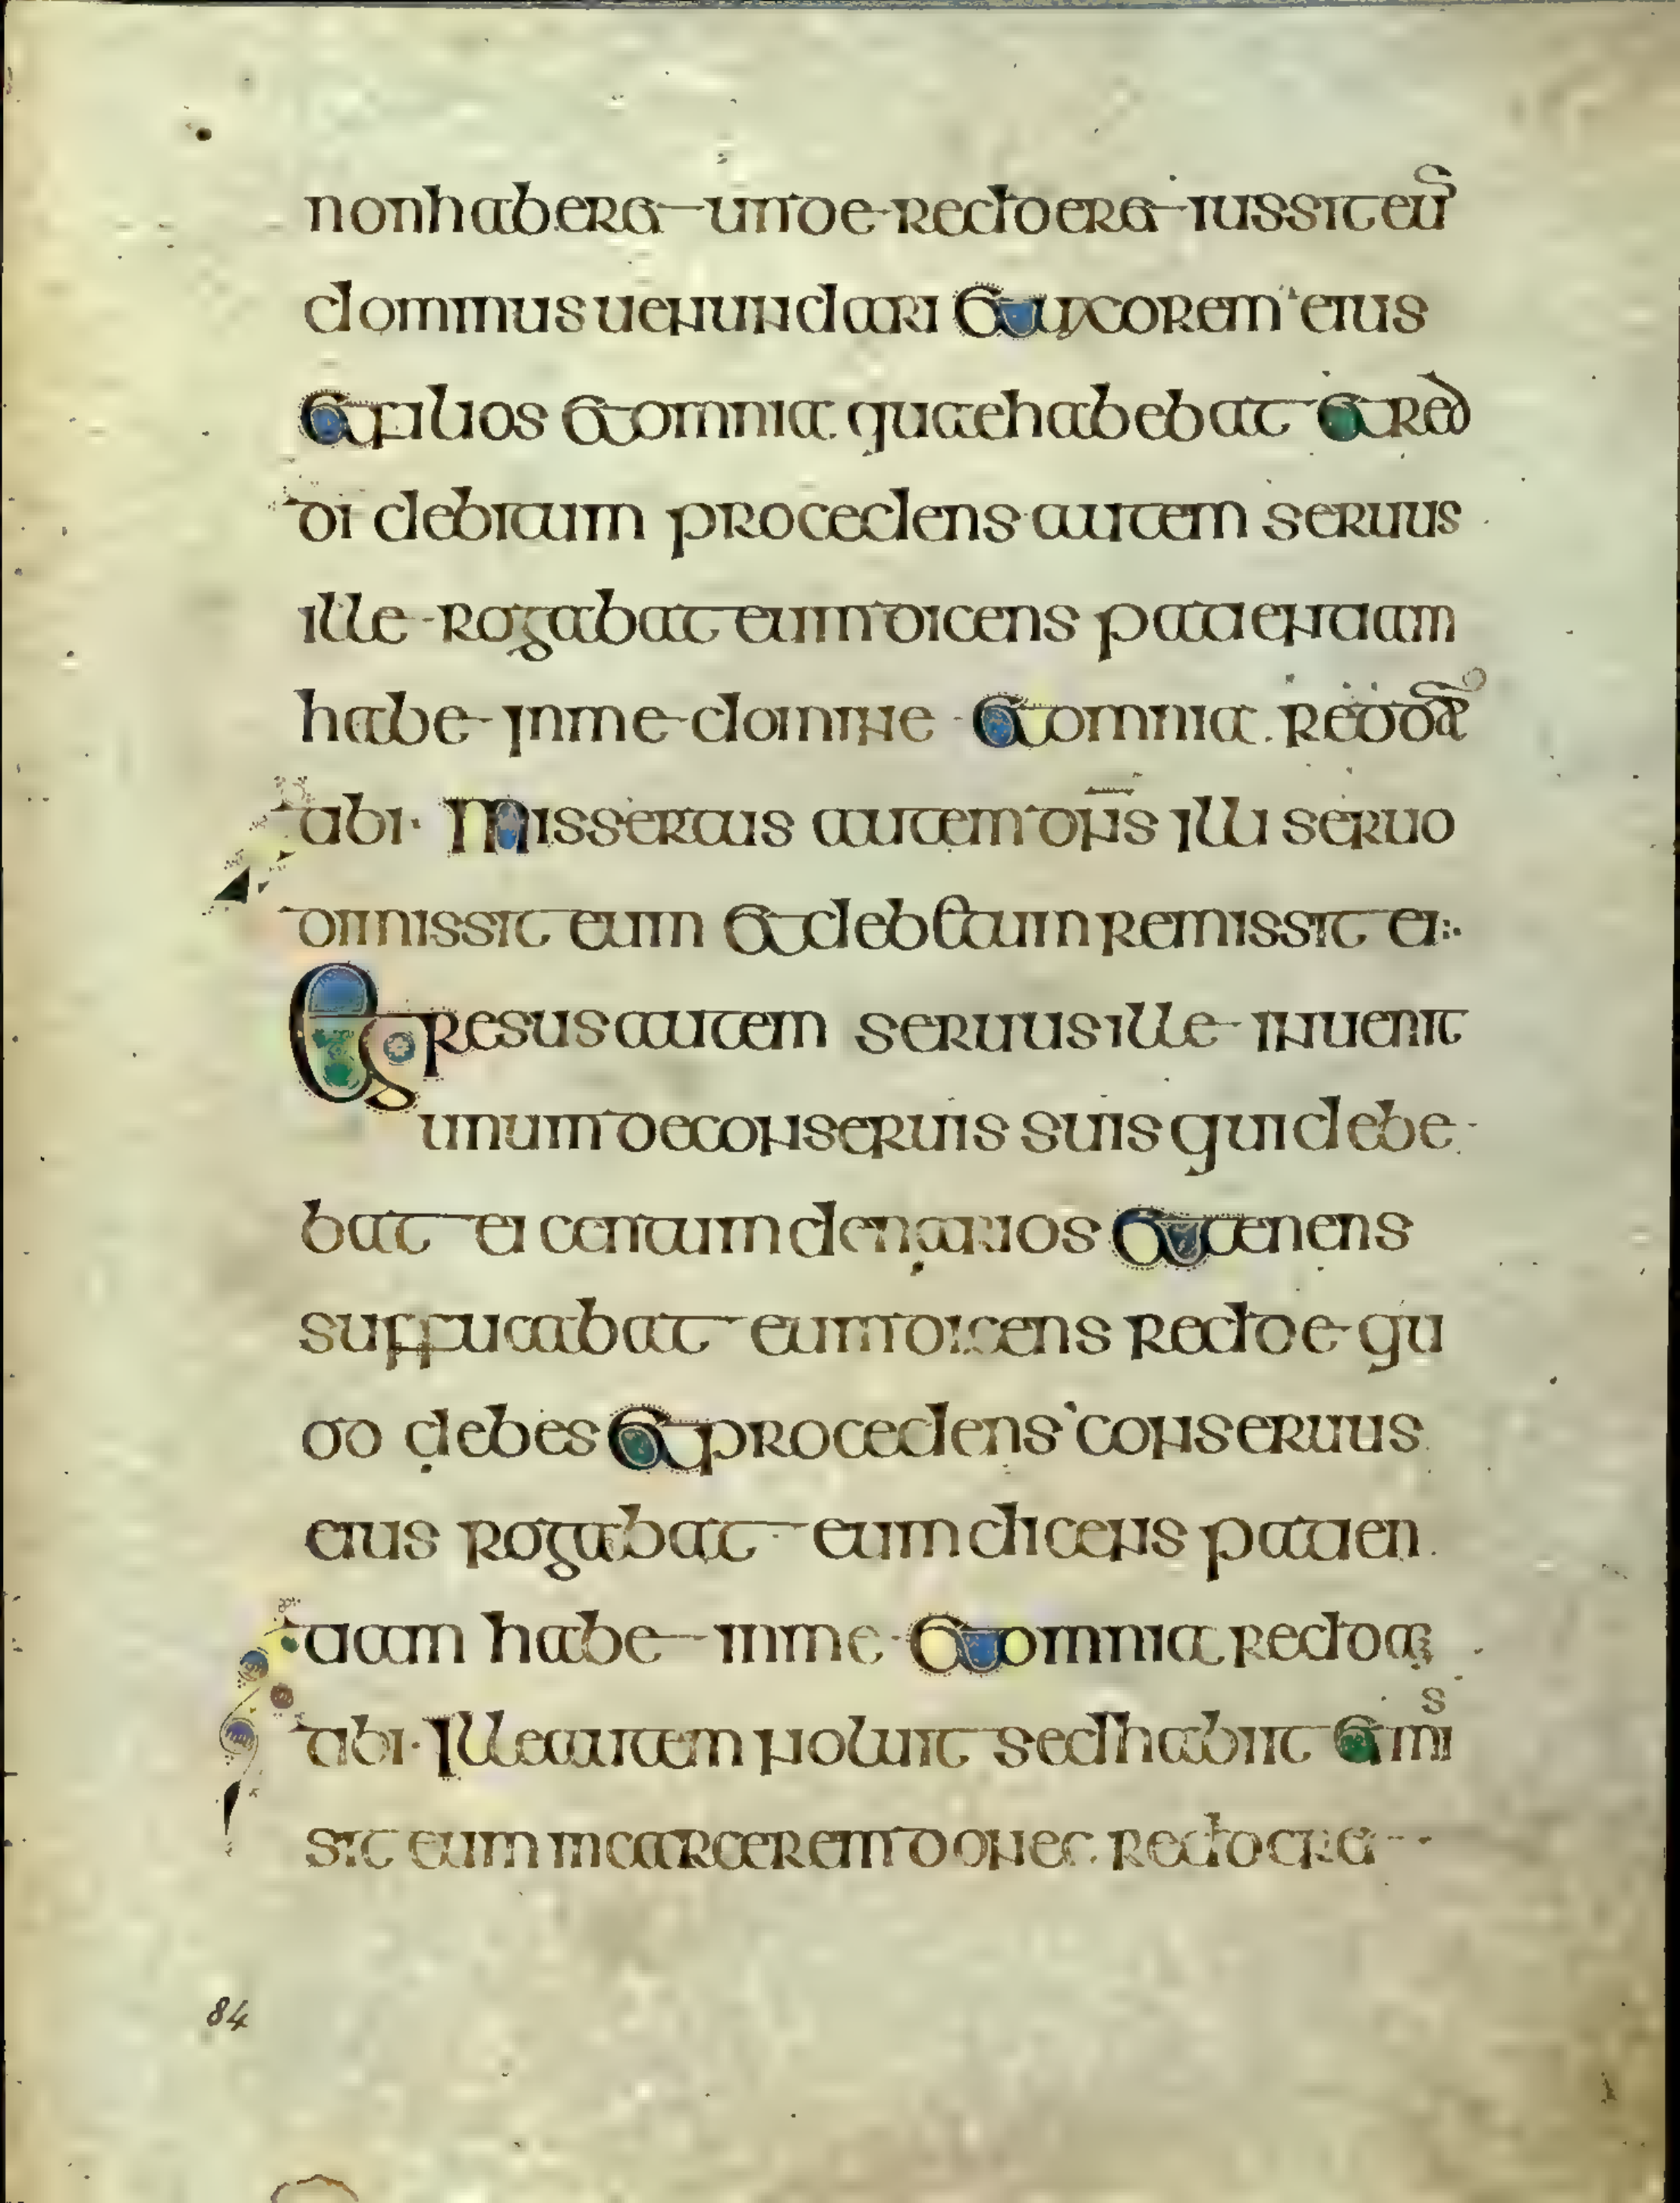 nonhaberet unde redderet iussit eū
dominus uenundari et uxorem eius
et filios et omnia quae habebat et red
di debitum procedens autem seruus
ille rogabat eum dicens patientiam
habe in me domine et omnia reddā
tibi · Missertus autem dn̄s illi seruo
dimissit eum et debitum remissit ei :·
Egresus autem seruus ille inuenit
unum de conseruis suis qui debe
bat ei centum denarios et tenens
suffucabat eum dicens redde qu
od debes et procedens conseruus
eius rogabat eum dicens patien
tiam habe in me et omnia reddam
tibi · Ille autem noluit sed habiit et mis
sit eum in carcerem donec redderet
84